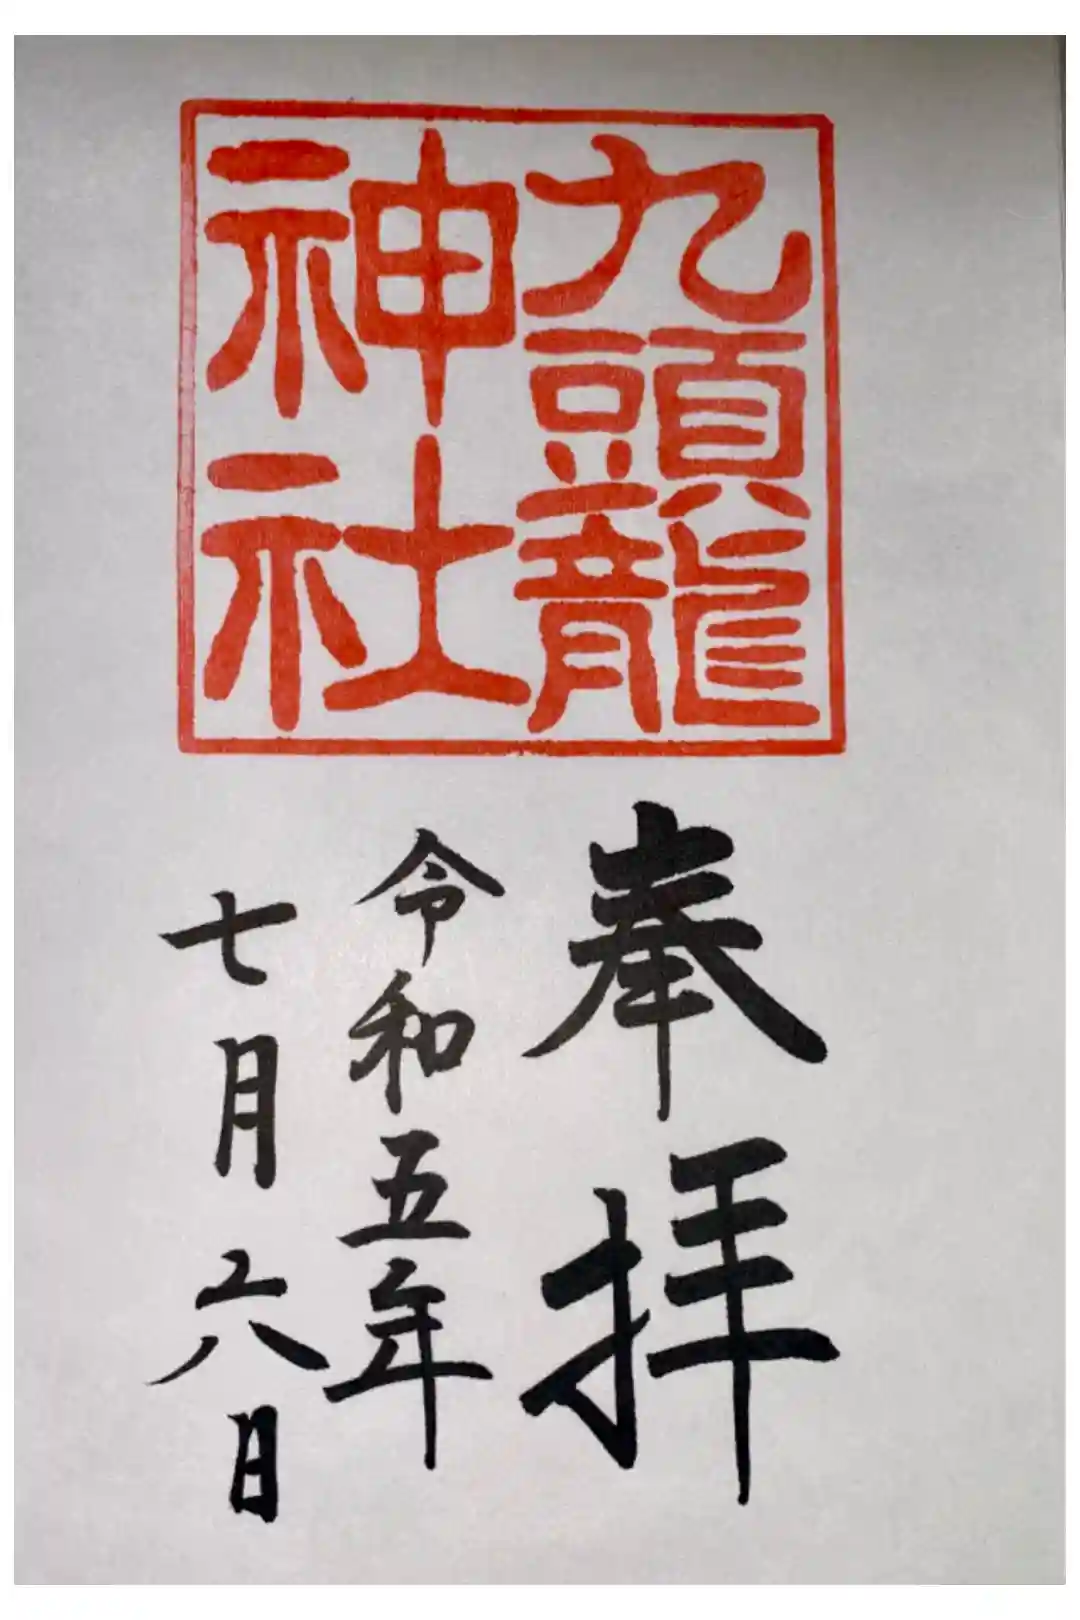 九頭龍
神社
奉拝
令和五年
七月六日